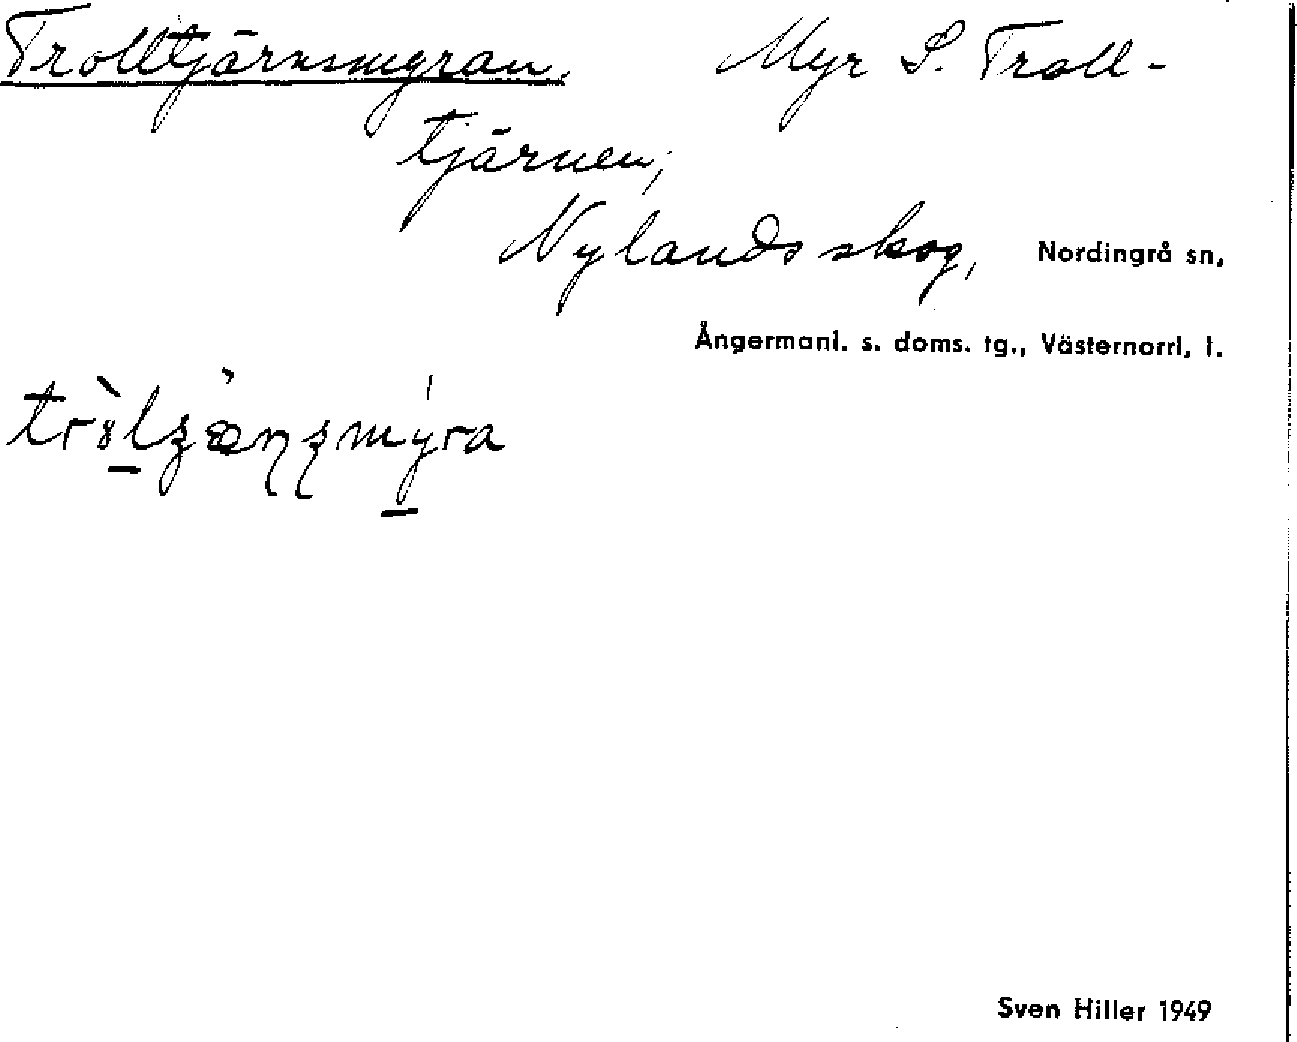 Trolltjärnsmyran. Myr S. Troll-
tjärnen,
Nylands skog, Nordingrå sn,
Ångermanl. s. doms. tg., Västernorrl. l.
Sven Hiller 1949